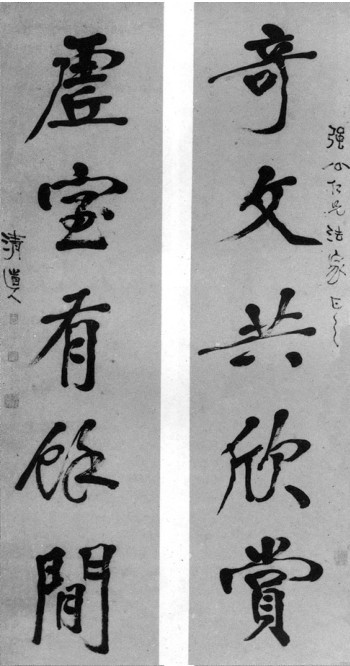 奇文共欣賞
强公仁兄法家正之
虛室有餘閒
清道人